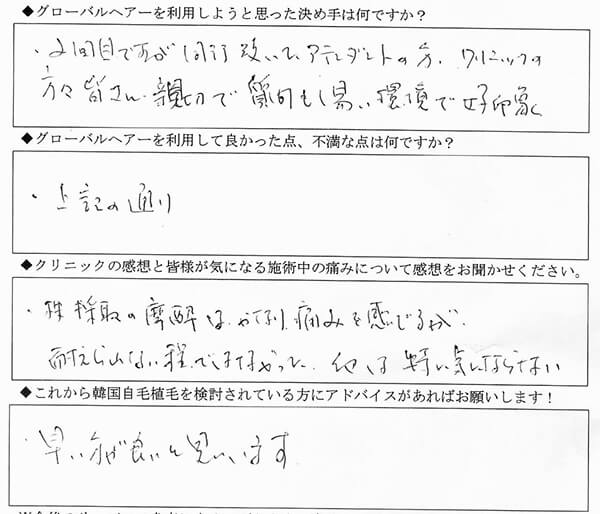 ◆グローバルヘアーを利用しようと思った決め手は何ですか？
・2回目ですが 前回 アテンダントの方、クリニックの
方々皆さん 親切で 質問もし易い環境で好印象
◆グローバルヘアーを利用して良かった点、不満な点は何ですか？
・上記の通り
◆クリニックの感想と皆様が気になる施術中の痛みについて感想をお聞かせください。
・株採取の摩酔は、かなり痛みを感じるが、
耐えられない程ではなかった。他は特に気にならない
◆これから韓国自毛植毛を検討されている方にアドバイスがあればお願いします！
・早い方が良いと思います